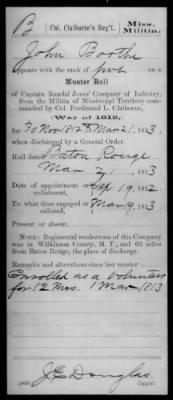 B | Col. Claiborne's Reg't, | Miss. Militia.
John Boothe
Appears with the rank of pvt on a
Muster Roll
of Captain Randal Jones' Company of Infantry,
from the Militia of Mississippi Territory com-
manded by Col. Ferdinand L. Claiborne,
(War of 1812,)
for 30 Nov 1812 to Mar 21, 1813,
when discharged by a General Order.
Roll dated Baton Rouge
Mar 21, 1813
Date of appointment or enlistment, Sep 19, 1812
To what time engaged or enlisted, Mar 9, 1813
Present or absent,
NOTE: Regimental rendezvous of this Company
was in Wilkinson County, M. T., and 65 miles
from Baton Rouge, the place of discharge.
Remarks and alterations since last muster
Enrolled as a volunteer
for 12 Mos. 1 Mar 1813
J. E. Douglas
Copyist.